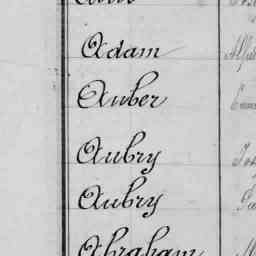 Adam
Auber
Aubry
Aubry
Abraham